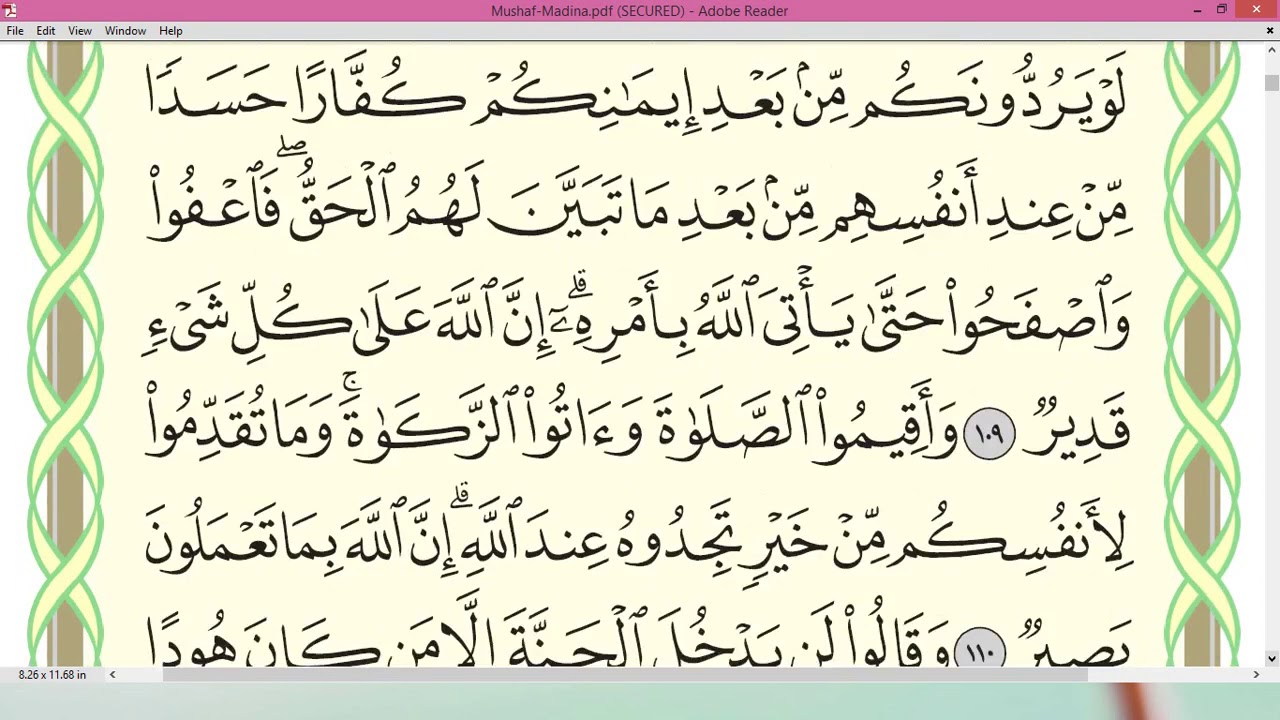 Mushaf-Madina.pdf (SECURED) - Adobe Reader
File Edit View Window Help
لَوْ يَرُدُّونَكُم مِّنۢ بَعْدِ إِيمَٰنِكُمْ كُفَّارًا حَسَدًا
مِّنْ عِندِ أَنفُسِهِم مِّنۢ بَعْدِ مَا تَبَيَّنَ لَهُمُ ٱلْحَقُّ ۖ فَٱعْفُوا۟
وَٱصْفَحُوا۟ حَتَّىٰ يَأْتِىَ ٱللَّهُ بِأَمْرِهِۦٓ ۗ إِنَّ ٱللَّهَ عَلَىٰ كُلِّ شَىْءٍ
قَدِيرٌ ١٠٩ وَأَقِيمُوا۟ ٱلصَّلَوٰةَ وَءَاتُوا۟ ٱلزَّكَوٰةَ ۚ وَمَا تُقَدِّمُوا۟
لِأَنفُسِكُم مِّنْ خَيْرٍ تَجِدُوهُ عِندَ ٱللَّهِ ۗ إِنَّ ٱللَّهَ بِمَا تَعْمَلُونَ
بَصِيرٌ ١١٠ وَقَالُوا۟ لَن يَدْخُلَ ٱلْجَنَّةَ إِلَّا مَن كَانَ هُودًا
8.26 x 11.68 in